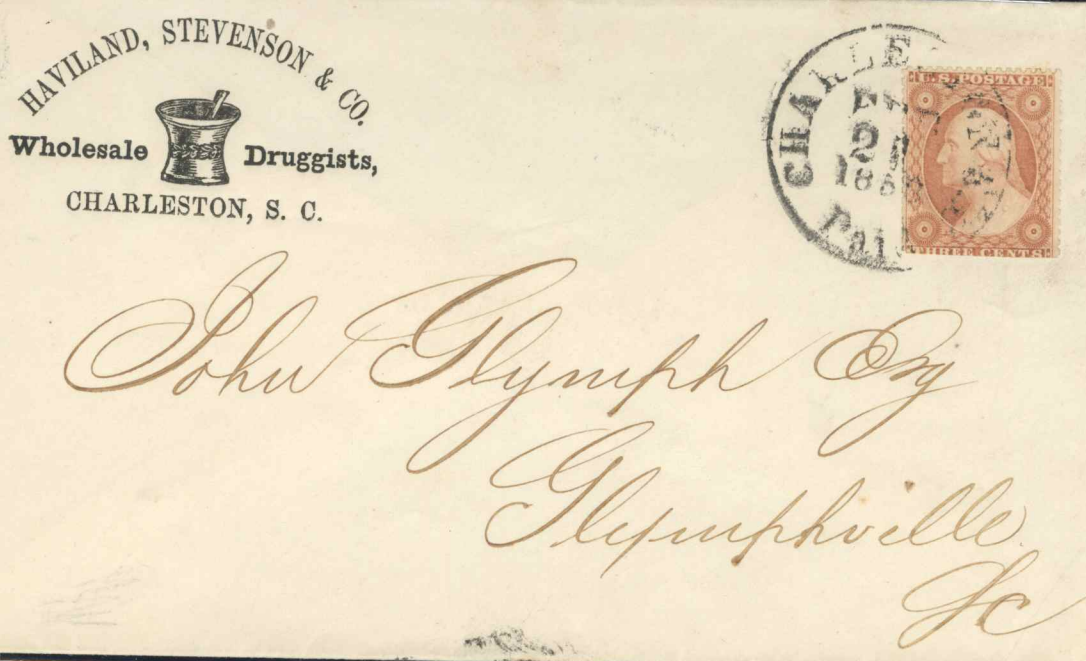 HAVILAND, STEVENSON & CO.
Wholesale Druggists,
CHARLESTON, S. C.
Paid
U.S. POSTAGE
THREE CENTS
John Glymph Esq
Glymphville
SC